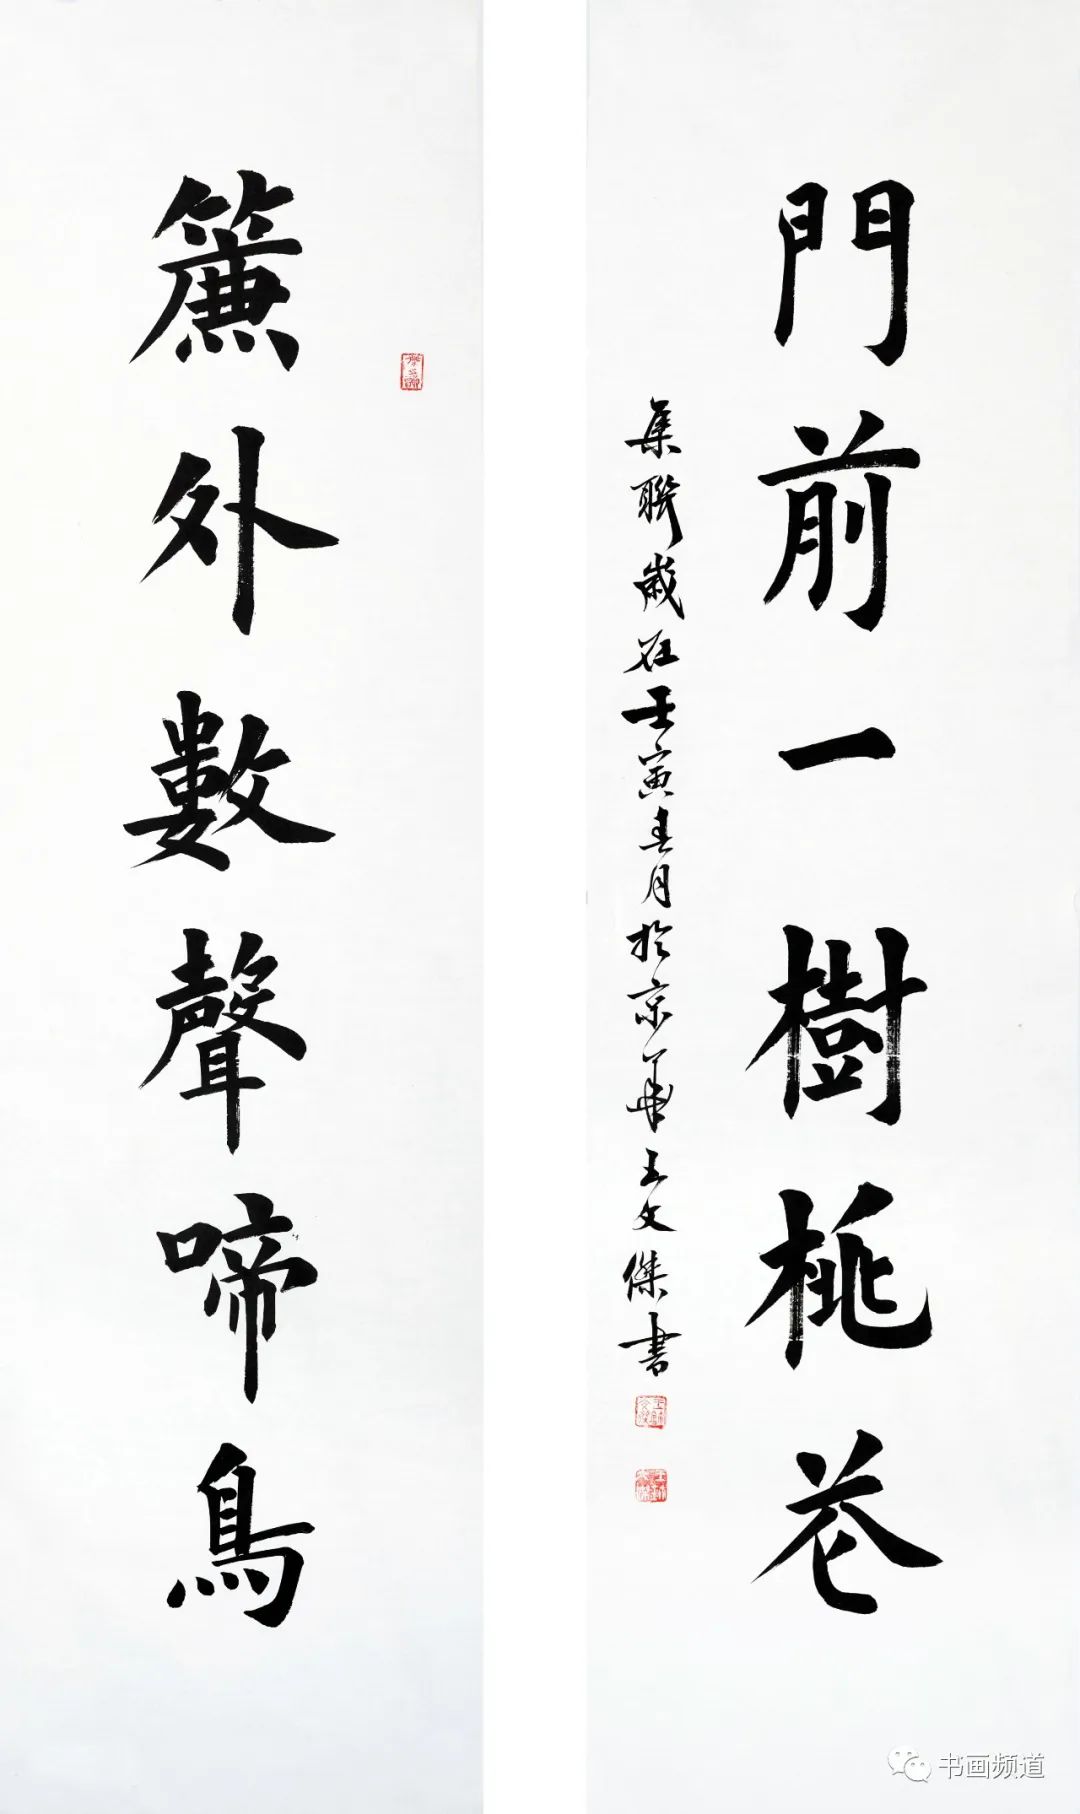 門前一樹桃花
集聯歲在壬寅春月於京華王文傑書
簾外數聲啼鳥
书画频道